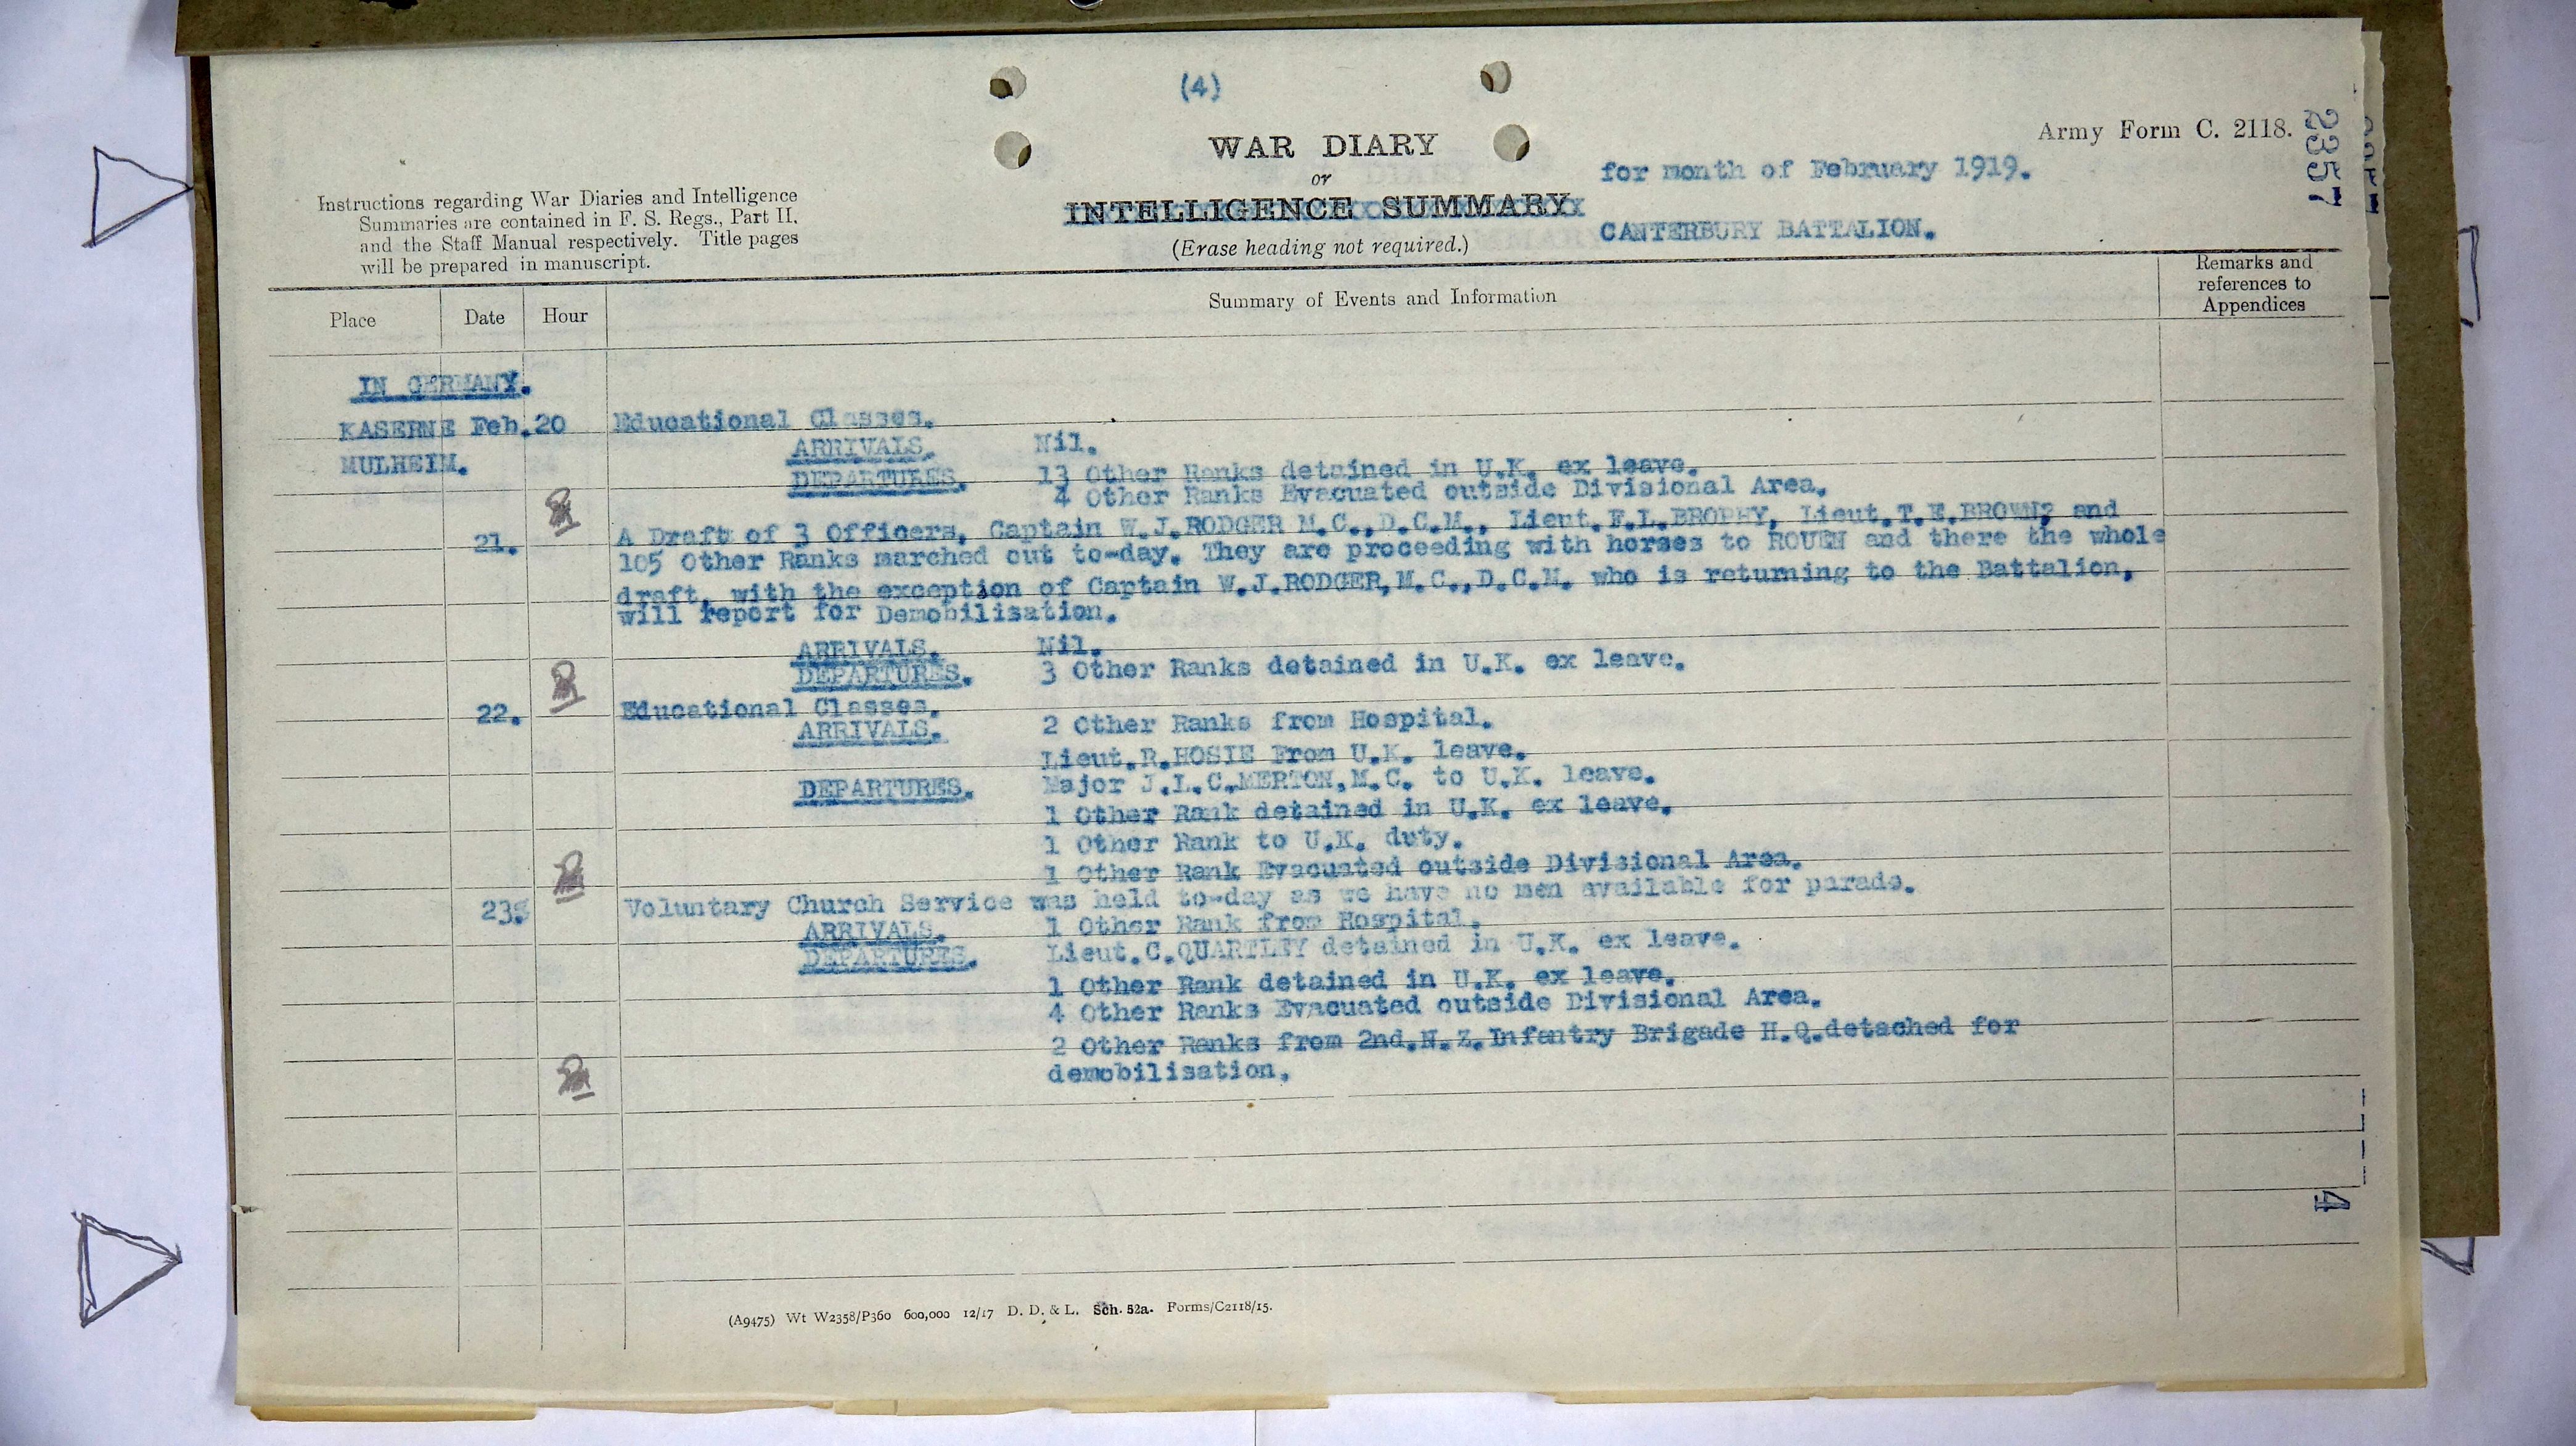 (4)
WAR DIARY
Army Form C. 2118.
2357
or
for month of February 1919.
Instructions regarding War Diaries and Intelligence
Summaries are contained in F. S. Regs., Part II.
and the Staff Manual respectively. Title pages
will be prepared in manuscript.
INTELLIGENCE SUMMARY
CANTERBURY BATTALION.
(Erase heading not required.)
Place Date Hour Summary of Events and Information Remarks and
references to
Appendices
IN GERMANY.
KASERNE Feb.20 Educational Classes.
ARRIVALS. Nil.
MULHEIM.
DEPARTURES. 13 Other Ranks detained in U.K. ex leave.
4 Other Ranks Evacuated outside Divisional Area.
21. A Draft of 3 Officers, Captain W.J.RODGER M.C.,D.C.M., Lieut.F.L.BROPHY, Lieut.T.E.BROWN; and
105 Other Ranks marched out to-day. They are proceeding with horses to ROUEN and there the whole
draft, with the exception of Captain W.J.RODGER,M.C.,D.C.M. who is returning to the Battalion,
will report for Demobilisation.
ARRIVALS. Nil.
DEPARTURES. 3 Other Ranks detained in U.K. ex leave.
22. Educational Classes.
ARRIVALS. 2 Other Ranks from Hospital.
Lieut.R.HOSIE From U.K. leave.
DEPARTURES. Major J.L.C.MERTON,M.C. to U.K. leave.
1 Other Rank detained in U.K. ex leave.
1 Other Rank to U.K. duty.
1 Other Rank Evacuated outside Divisional Area.
23. Voluntary Church Service was held to-day as we have no men available for parade.
ARRIVALS. 1 Other Rank from Hospital.
DEPARTURES. Lieut.C.QUARTLEY detained in U.K. ex leave.
1 Other Rank detained in U.K. ex leave.
4 Other Ranks Evacuated outside Divisional Area.
2 Other Ranks from 2nd.N.Z.Infantry Brigade H.Q.detached for
demobilisation.
4
(A9475) Wt W2358/P360 600,000 12/17 D. D. & L. Sch. 52a. Forms/C2118/15.